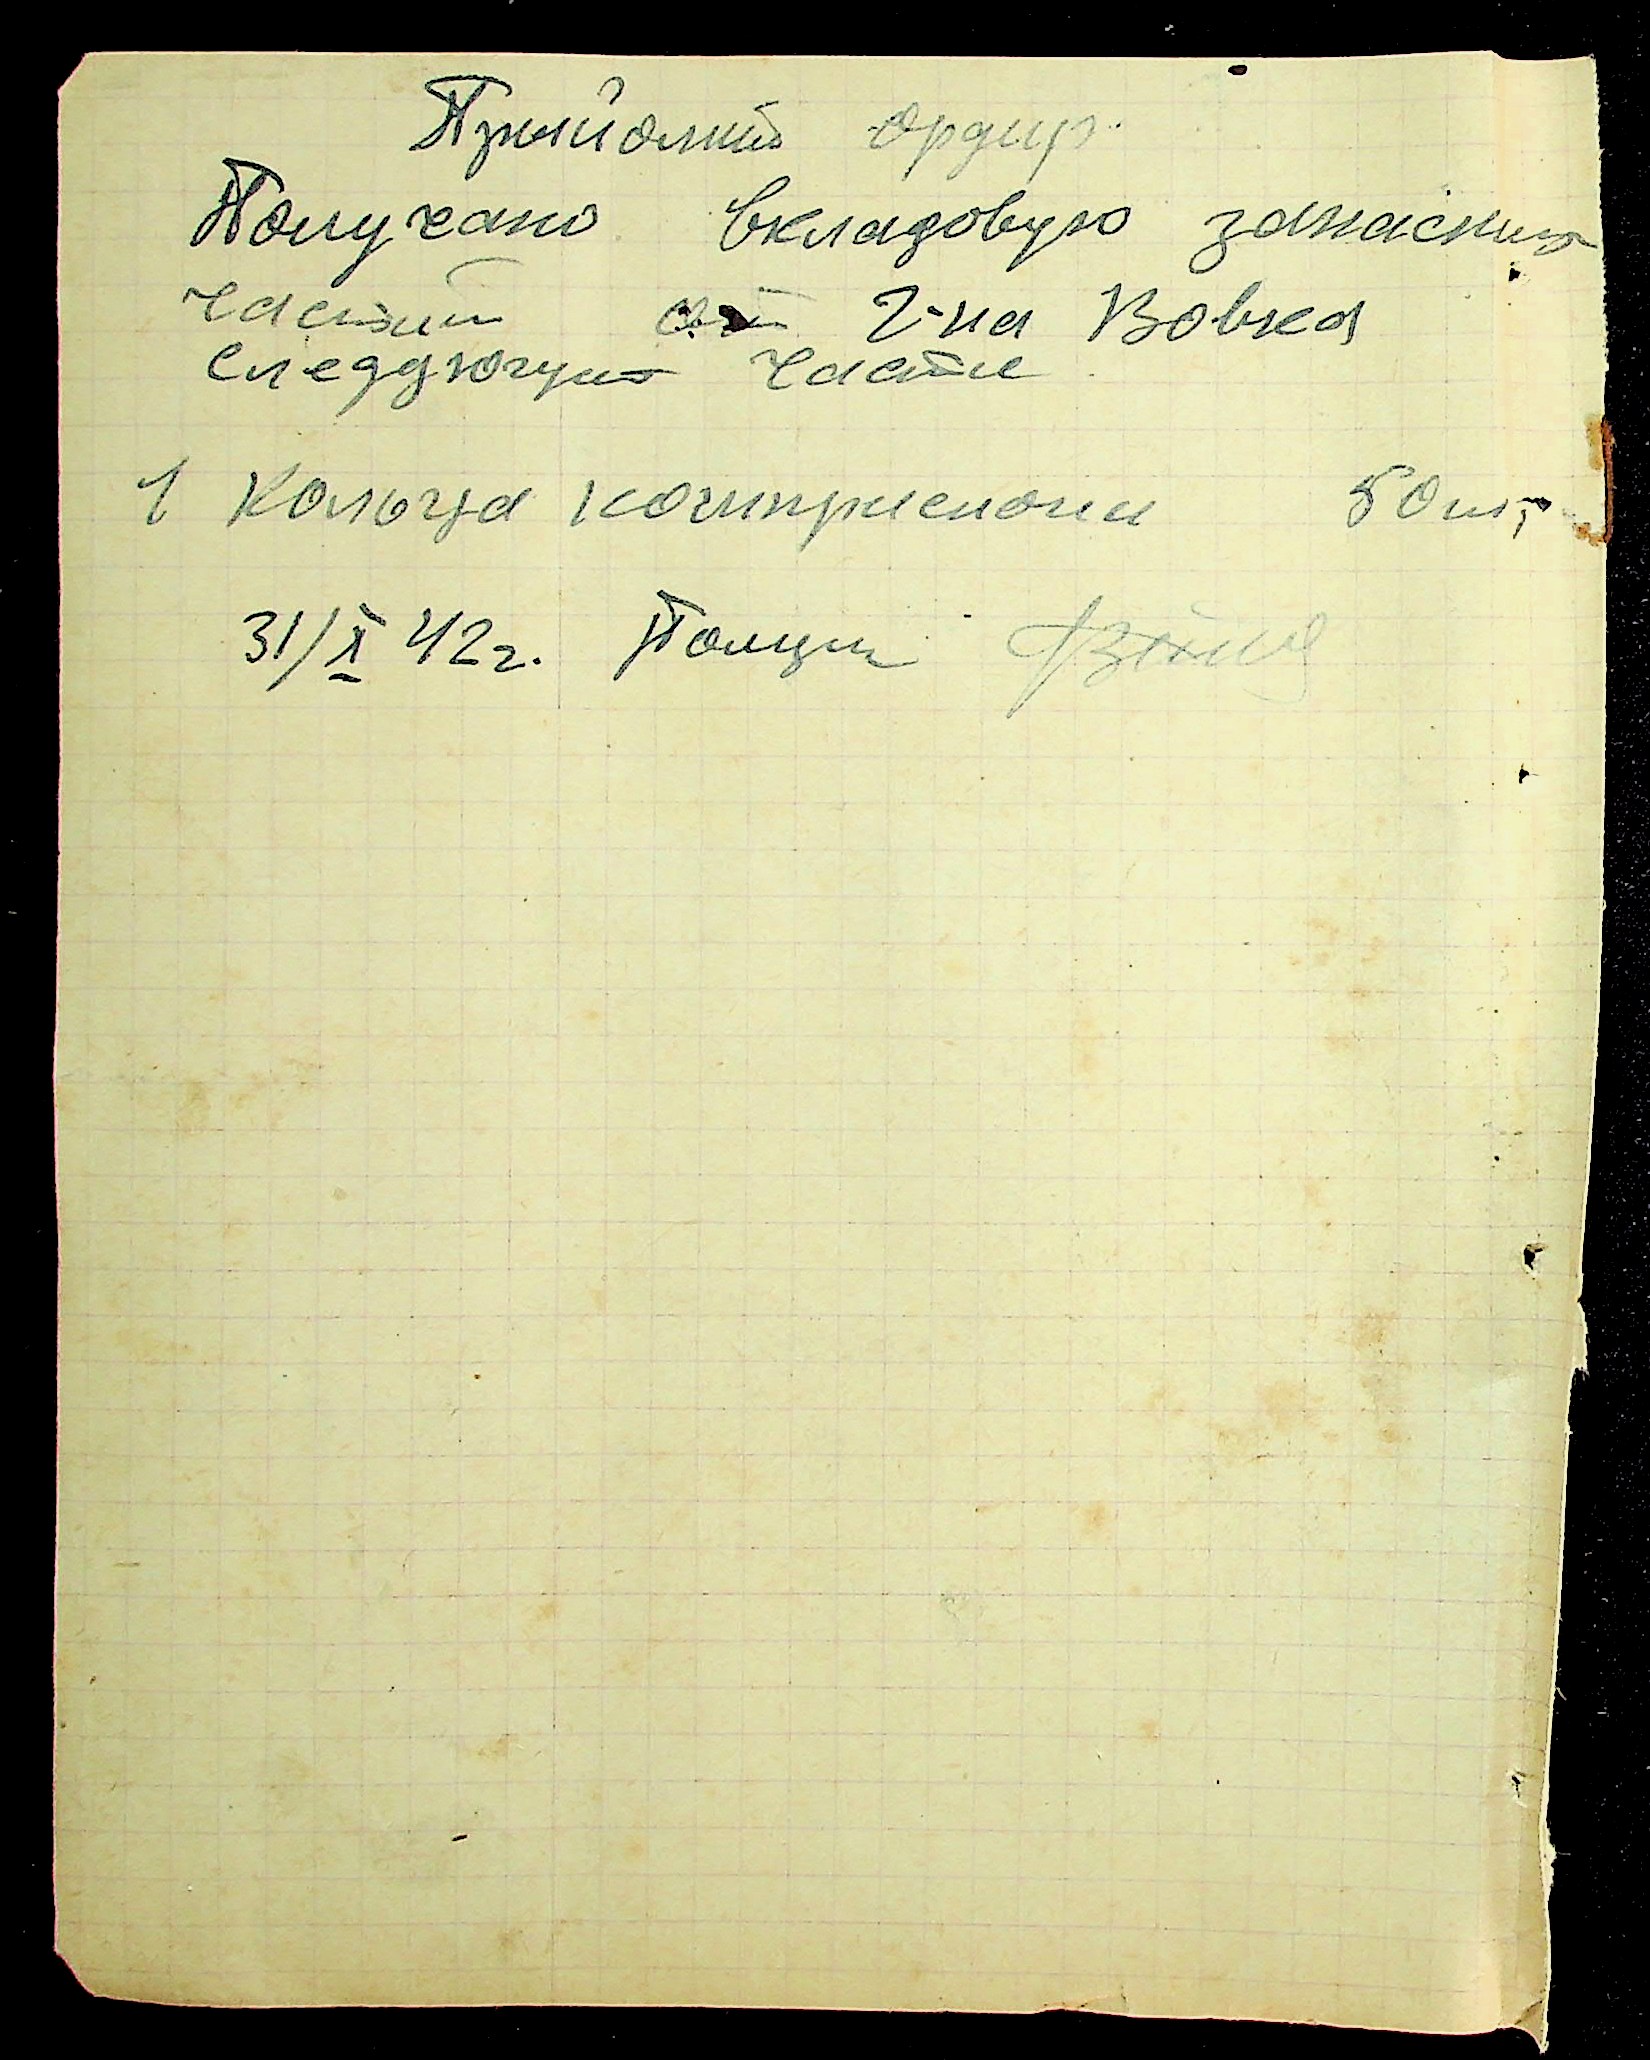 Прийомний ордир
Получано вкладовую запасних
частий от г-на Вовка
следдующих части
1 Кольца компресиони 50 шт,
31/X 42 г. Получил